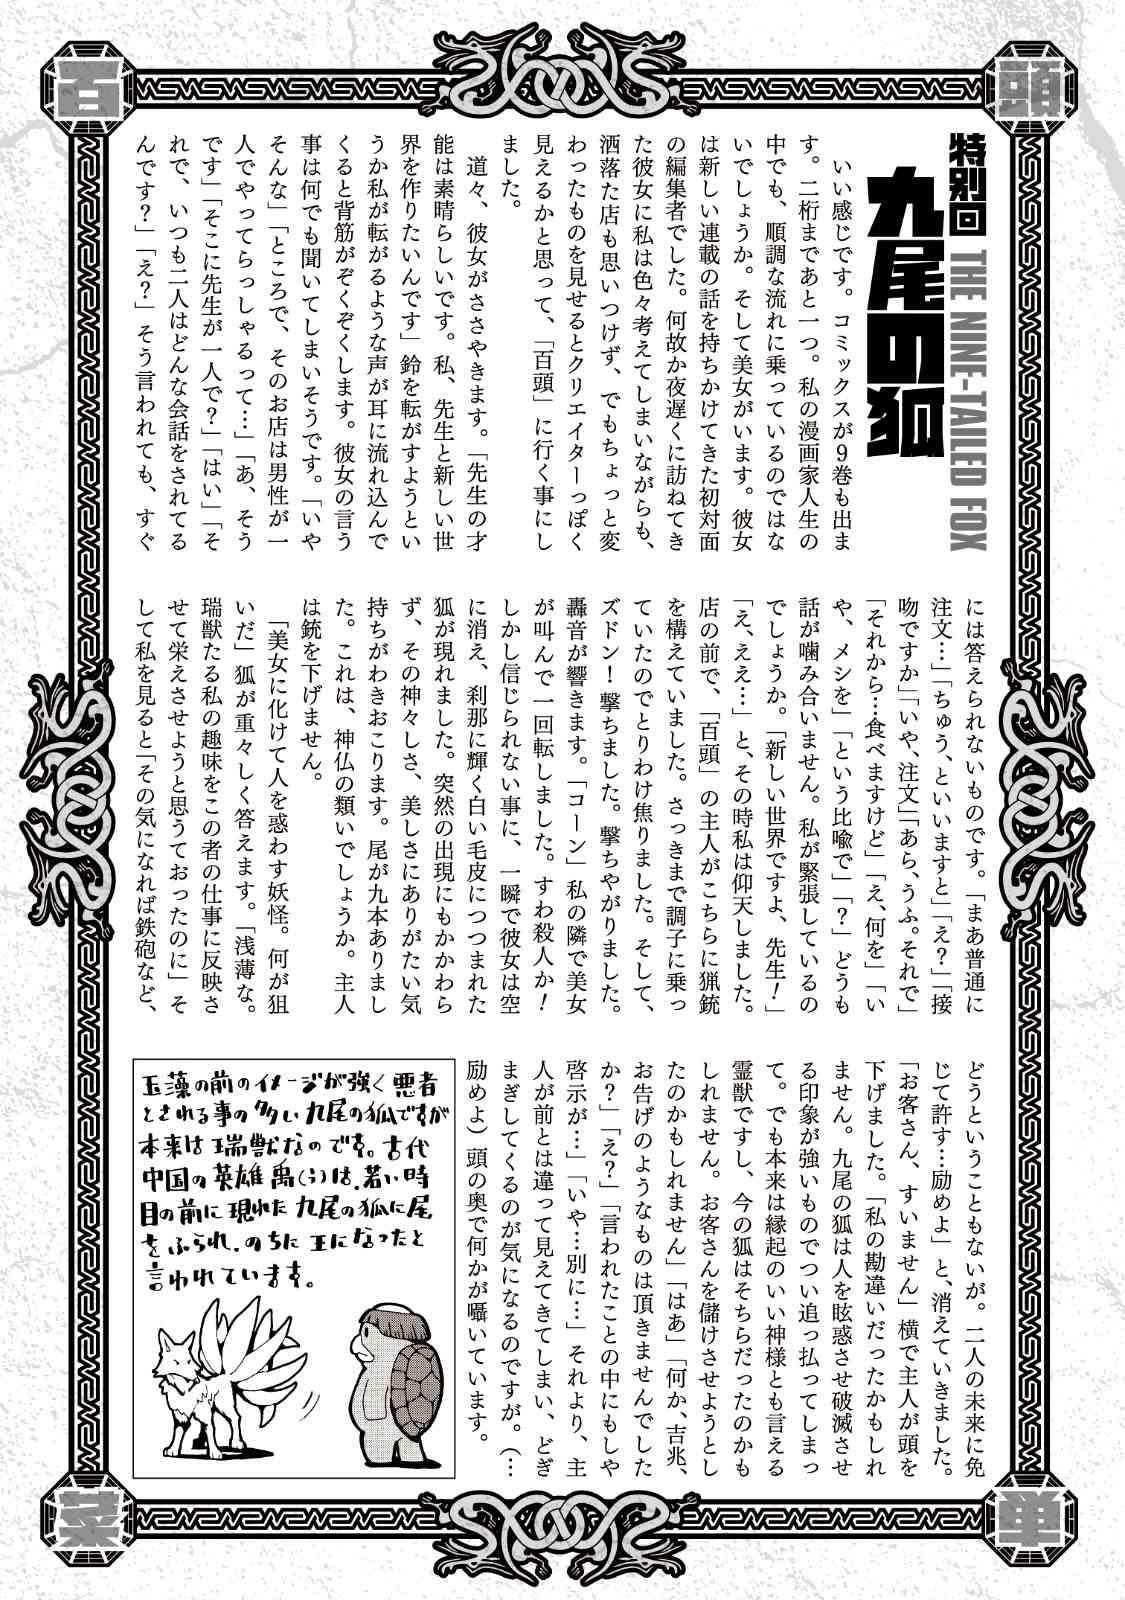 百
頭
特別回
九尾の狐
THE NINE-TAILED FOX
いい感じです。コミックスが9巻も出ま
す。二桁まであと一つ。私の漫画家人生の
中でも、順調な流れに乗っているのではな
いでしょうか。そして美女がいます。彼女
は新しい連載の話を持ちかけてきた初対面
の編集者でした。何故か夜遅くに訪ねてき
た彼女に私は色々考えてしまいながらも、
洒落た店も思いつけず、でもちょっと変
わったものを見せるとクリエイターっぽく
見えるかと思って、「百頭」に行く事にし
ました。
道々、彼女がささやきます。「先生の才
能は素晴らしいです。私、先生と新しい世
界を作りたいんです」鈴を転がすようとい
うか私が転がるような声が耳に流れ込んで
くると背筋がぞくぞくします。彼女の言う
事は何でも聞いてしまいそうです。「いや
そんな」「ところで、そのお店は男性が一
人でやってらっしゃるって…」「あ、そう
です」「そこに先生が一人で?」「はい」「そ
れで、いつも二人はどんな会話をされてる
んです?」「え?」そう言われても、すぐ
には答えられないものです。「まあ普通に
注文…」「ちゅう、といいますと」「え?」「接
吻ですか」「いや、注文」「あら、うふ。それで」
「それから…食べますけど」「え、何を」「い
や、メシを」「という比喩で」「?」どうも
話が噛み合いません。私が緊張しているの
でしょうか。「新しい世界ですよ、先生!」
「え、ええ…」と、その時私は仰天しました。
店の前で、「百頭」の主人がこちらに猟銃
を構えていました。さっきまで調子に乗っ
ていたのでとりわけ焦りました。そして、
ズドン!撃ちました。撃ちやがりました。
轟音が響きます。「コーン」私の隣で美女
が叫んで一回転しました。すわ殺人か!
しかし信じられない事に、一瞬で彼女は空
に消え、刹那に輝く白い毛皮につつまれた
狐が現れました。突然の出現にもかかわら
ず、その神々しさ、美しさにありがたい気
持ちがわきおこります。尾が九本ありまし
た。これは、神仏の類いでしょうか。主人
は銃を下げません。
「美女に化けて人を惑わす妖怪。何が狙
いだ」狐が重々しく答えます。「浅薄な。
瑞獣たる私の趣味をこの者の仕事に反映さ
せて栄えさせようと思うておったのに」そ
して私を見ると「その気になれば鉄砲など、
どうということもないが。二人の未来に免
じて許す…励めよ」と、消えていきました。
「お客さん、すいません」横で主人が頭を
下げました。「私の勘違いだったかもしれ
ません。九尾の狐は人を眩惑させ破滅させ
る印象が強いものでつい追っ払ってしまっ
て。でも本来は縁起のいい神様とも言える
霊獣ですし、今の狐はそちらだったのかも
しれません。お客さんを儲けさせようとし
たのかもしれません」「はあ」「何か、吉兆、
お告げのようなものは頂きませんでした
か?」「え?」「言われたことの中にもしや
啓示が…」「いや…別に…」それより、主
人が前とは違って見えてきてしまい、どぎ
まぎしてくるのが気になるのですが。(…
励めよ)頭の奥で何かが囁いています。
玉藻の前のイメージが強く悪者
とされる事の多い九尾の狐ですが
本来は瑞獣なのです。古代
中国の英雄禹(う)は、若い時
目の前に現れた九尾の狐に尾
をふられ、のちに王になったと
言われています。
菜
単